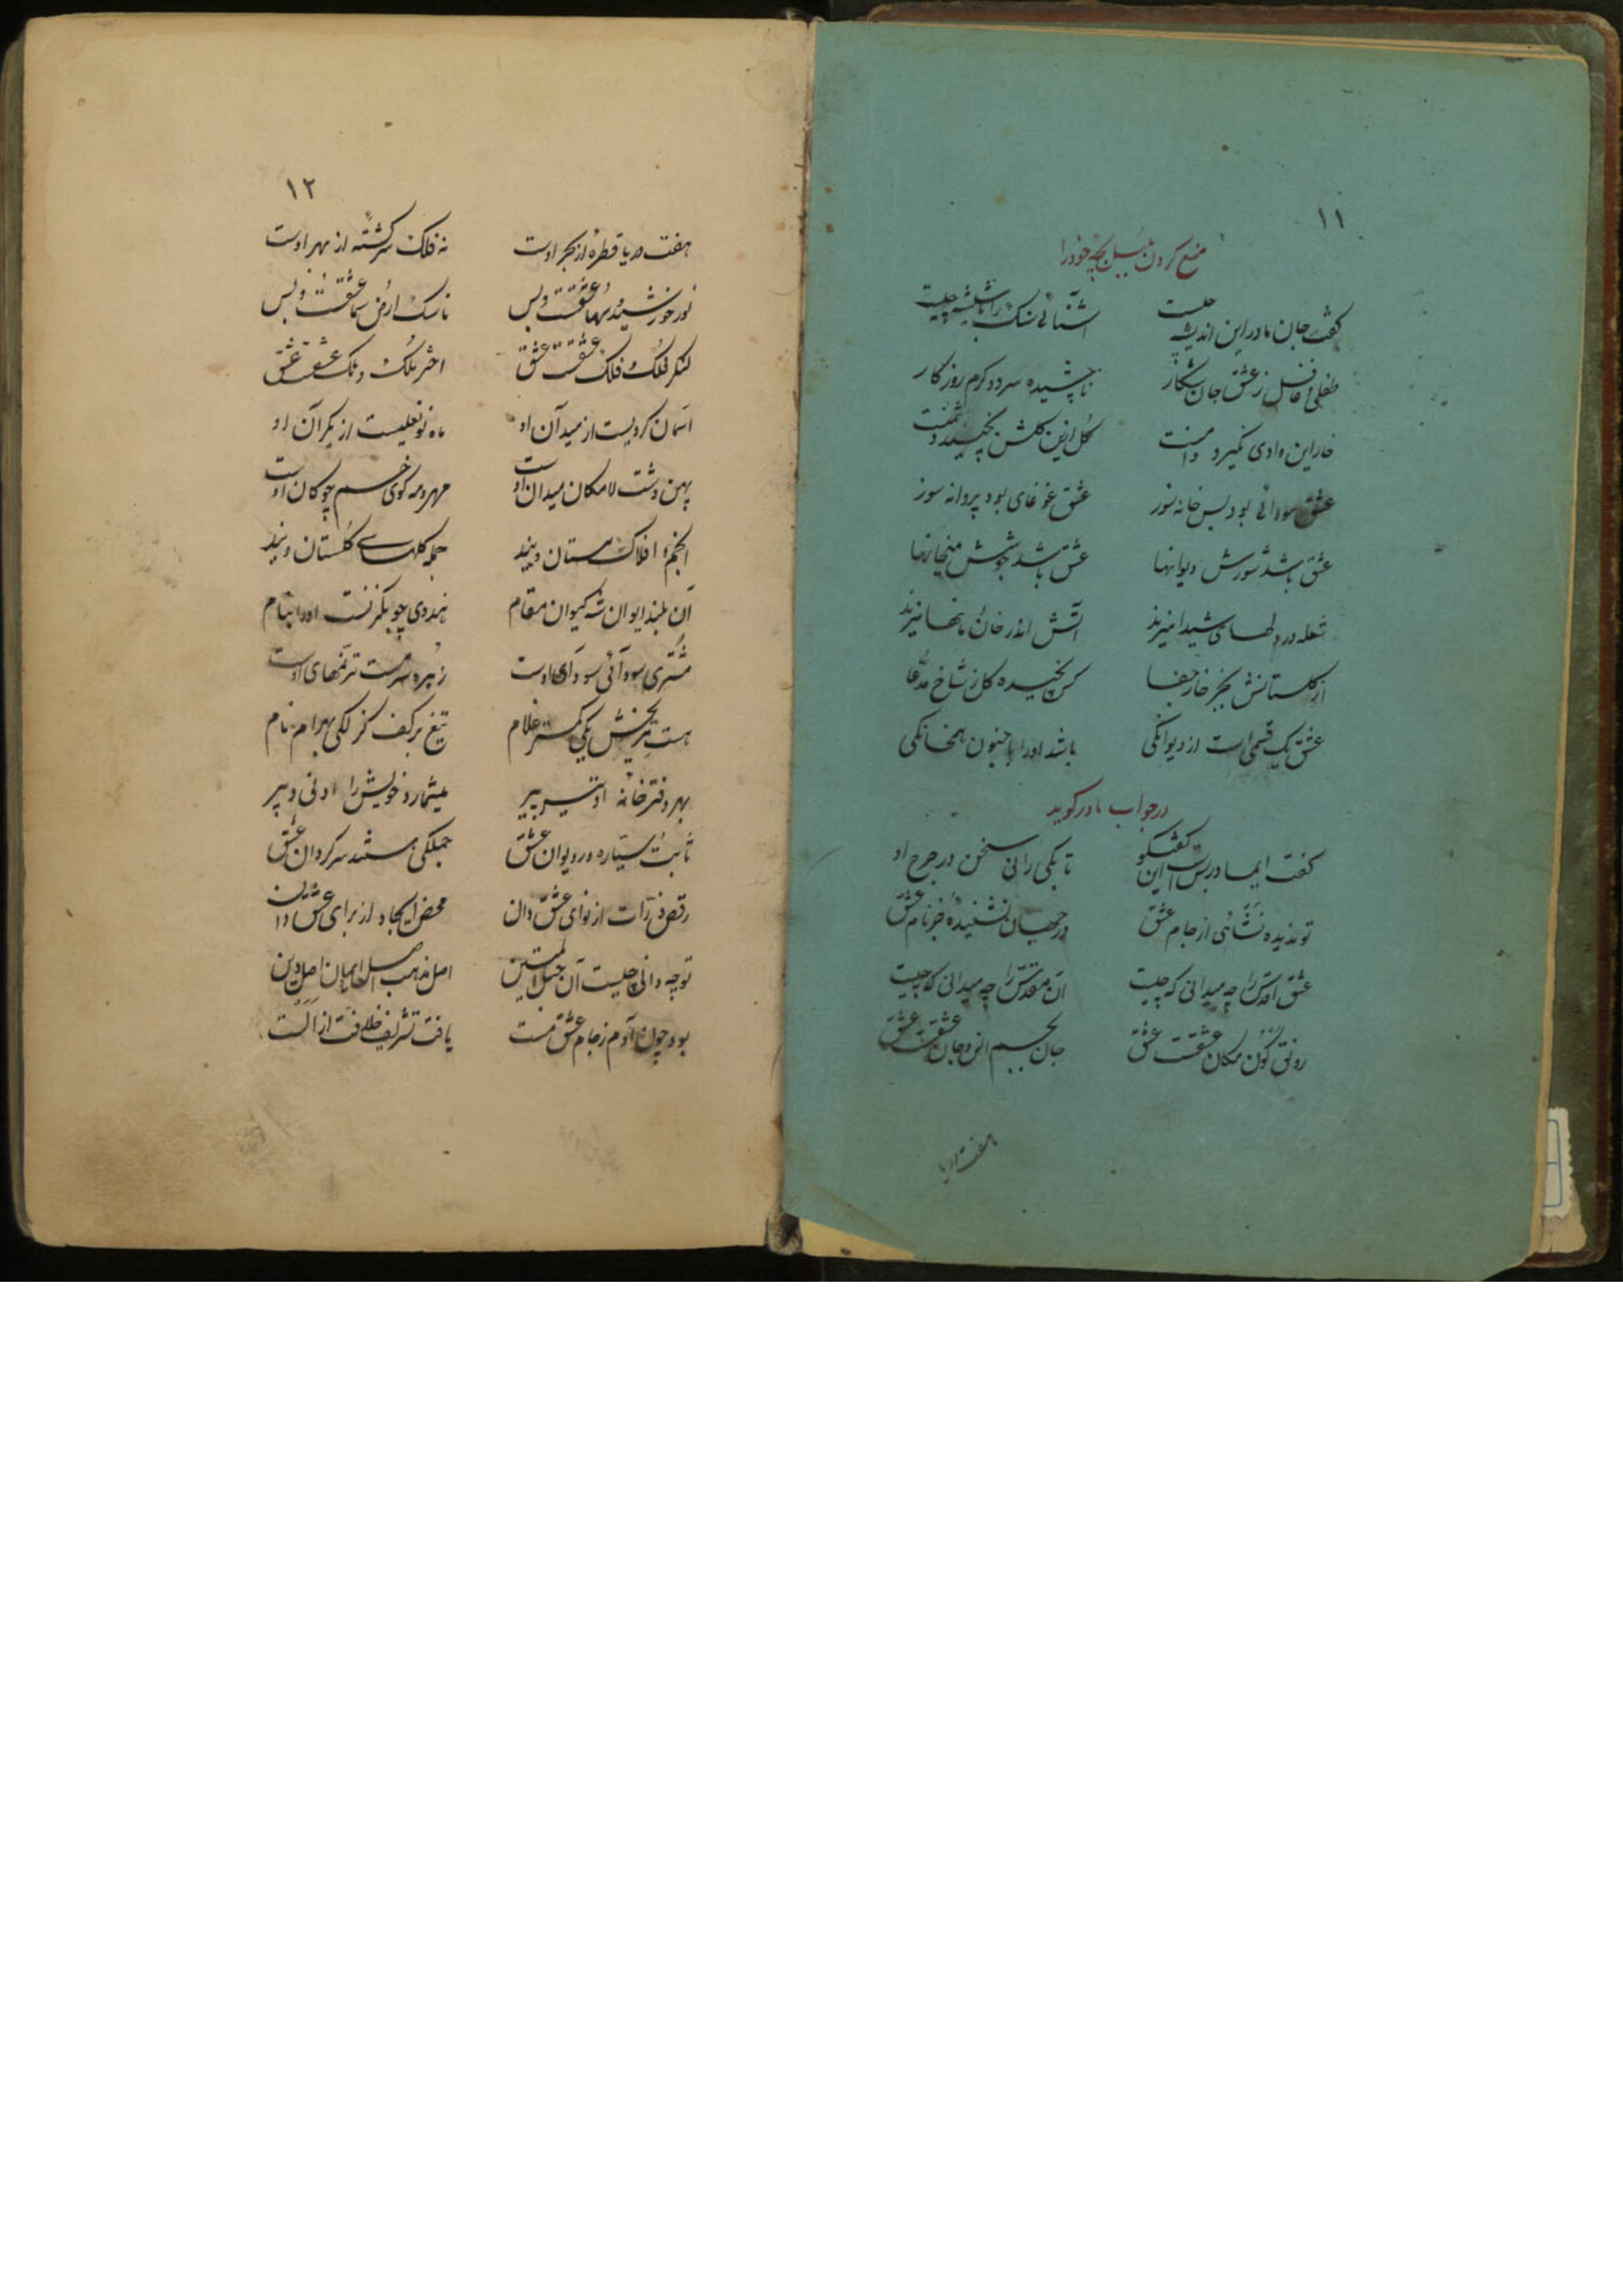 ١١
منع کردن بلبل بچه خود را
گفت جان مادر این اندیشه چیست آشنائی سنک را با شیشه چیست
طفلی و غافل ز عشق جان شکار ناچشیده سرد و کرم روزکار
خار این وادی نگیرد دامنت کل ازین کلشن نچیند دشمنت
عشق سودائی بود بس خانه سوز عشق غوغای بود پروانه سوز
عشق باشد شورش دیوانها عشق باشد جوشش میخانها
شعله در دلهای شیدا میزند آتش اندر خانۀ مانها میزند
از کلستانش بجز خار جفا کس نچیده کل ز شاخ مدعا
عشق یک قسمی است از دیوانکی باشد او را با جنون همخانکی
در جواب مادر کوید
گفت ایمادر بس است این گفتگو تا بکی رانی سخن در جرح او
تو ندیده نشائی از جام عشق در جهان نشنیدۀ جز نام عشق
عشق اقدس را چه میدانی که چیست آن مقدس را چه میدانی که چیست
رونق کون مکان عشقست عشق جان بجسم انس و جان عشقست عشق
هفت دریا
١٢
هفت دریا قطرۀ از بحر اوست نه فلک سرکشته از بهر اوست
نور خورشید و سها عشقست و بس ماسک ارض و سما عشقست و بس
لنکر فلک و فلک عشقست عشق اختر ملک و ملک عشقست عشق
آسمان کردیست از میدان او ماه نو نعلیست از یکران او
پهن دشت لامکان میدان اوست مهر و مه کوی خم چوکان اوست
انجم و افلاک مستان ویند جمله کلهای کلستان ویند
آن بلند ایوان شه کیوان مقام هندوی چوبکزنست او را بنام
مشتری سودائی سودای اوست زهره سرمست ترنمهای اوست
هست مریخش یکی کمتر غلام تیغ بر کف کزلکی بهرام نام
بهر دفترخانه او تیر پیر میشمارد خویش را ادنی دبیر
ثابت و سیاره در دیوان عشق جملکی هستند سرکردان عشق
رقص ذرات از نوای عشق دان محض ایجاد از برای عشق دان
تو چه دانی چیست آن حبل المتین اصل مذهب اصل ایمان اصل دین
بود چون آدم ز جام عشق مست یافت تشریف خلافت از الست